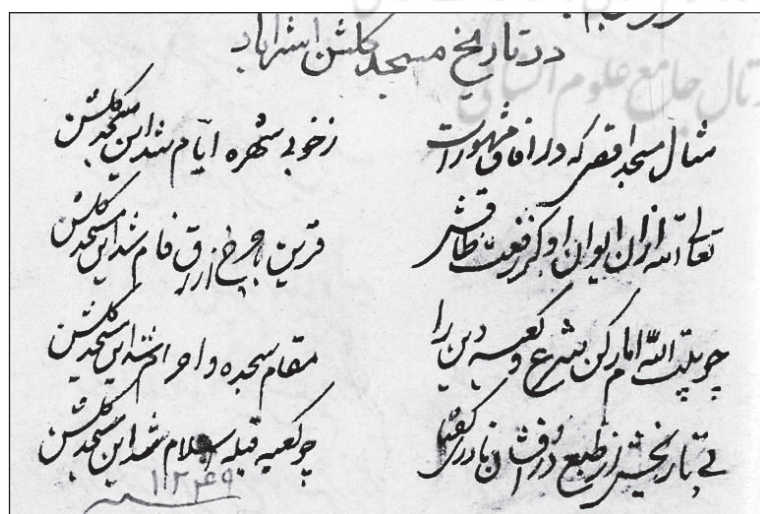 رتال جامع علوم انسانی
در تاریخ مسجد گلشن استراباد
مثال مسجد اقصی که در آفاق مشهور است ز خوبی شهره ایام شد این مسجد گلشن
تعالی الله از آن ایوان او کز رفعت طاقش قرین با چرخ ازرق فام شد این مسجد گلشن
چو بیت الله امام رکن شرع و کعبه دین را مقام سجده و احرام شد این مسجد گلشن
پی تاریخش از طبع درافشان نادری گفتا چو کعبه قبله اسلام شد این مسجد گلشن
۱۲۴۹